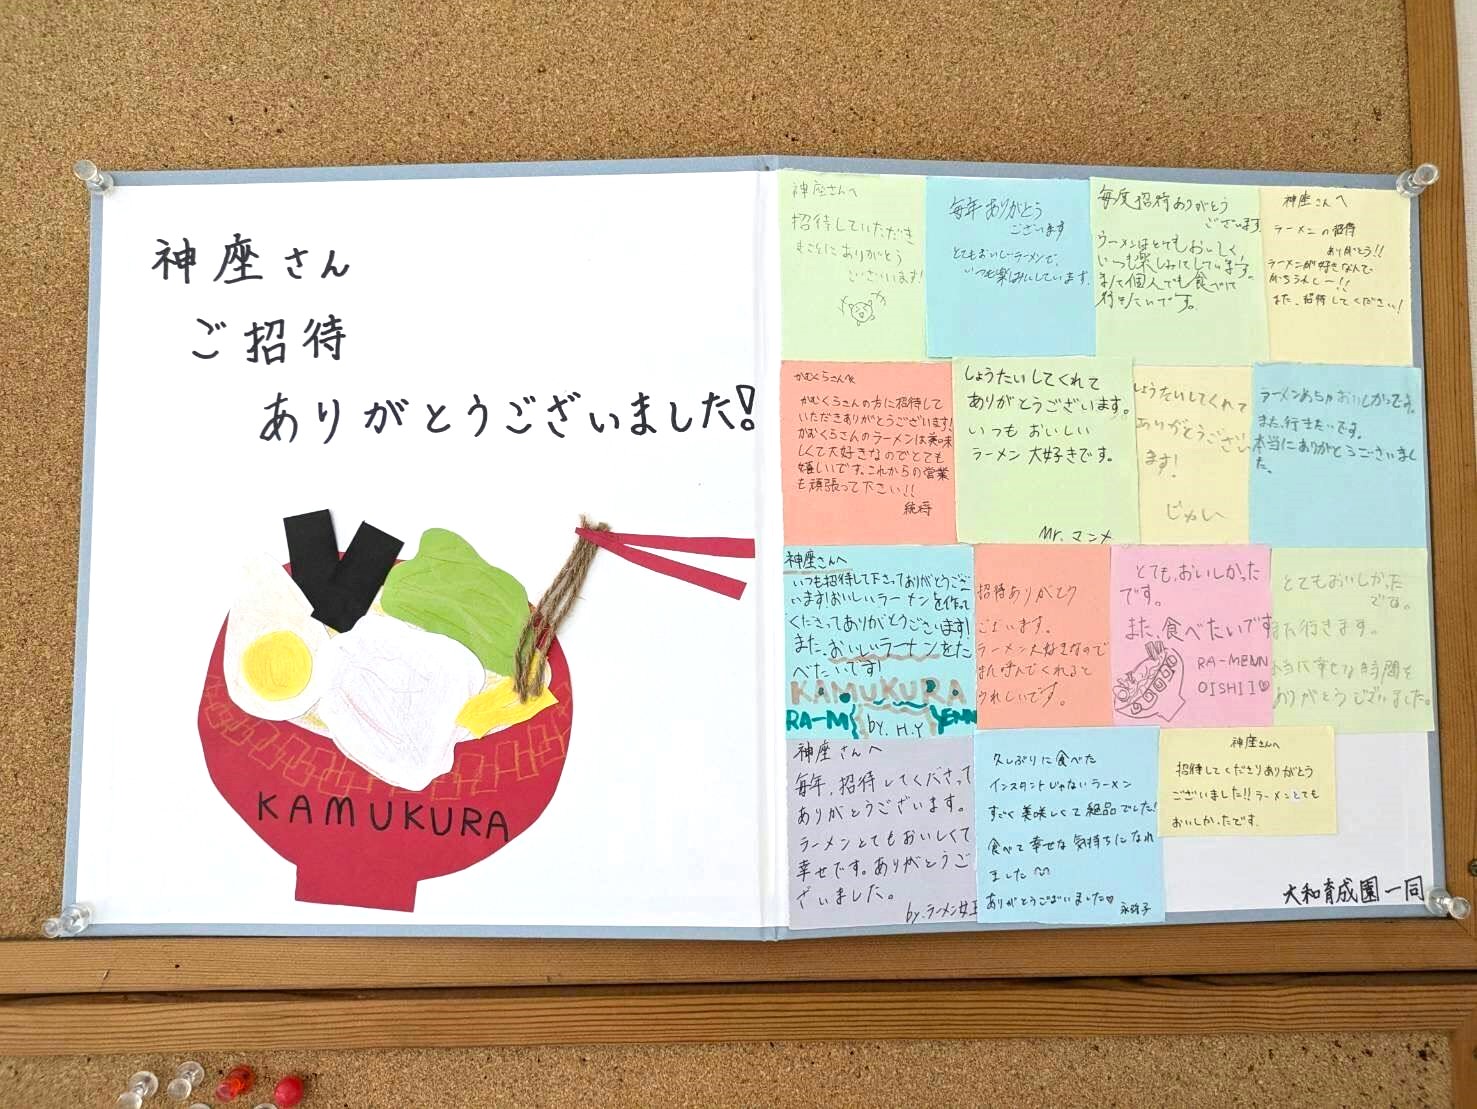 神座さん
ご招待
ありがとうございました!
KAMUKURA
神座さんへ
招待していただき
まことにありがとう
ございます!
毎年ありがとう
ございます
とてもおいしいラーメンで、
いつも楽しみにしています。
毎度招待ありがとう
ございます
ラーメンはとてもおいしく、
いつも楽しみにしています。
また個人でも食べに
行きたいです。
神座さんへ
ラーメンの招待
ありがとう!!
ラーメンが好きなんで
めちうれしー!!
また、招待してください!
かむくらさんへ
かむくらさんの方に招待して
いただきありがとうございます!
かむくらさんのラーメンは美味
しくて大好きなのでとても
嬉しいです。これからの営業
も頑張って下さい!!
しょうたいしてくれて
ありがとうございます。
いつもおいしい
ラーメン大好きです。
Mr.マンメ
しょうたいしてくれて
ありがとうござい
ます!
ラーメンめちゃおいしかったです。
また、行きたいです。
本当にありがとうございまし
た。
神座さんへ
いつも招待して下さってありがとうござ
います!おいしいラーメンを作って
くださってありがとうございます!
また、おいしいラーメンをた
べたいです!
KAMUKURA
RA-M by. H.Y ENN
招待ありがとう
ございます。
ラーメン大好きなので
また呼んでくれると
うれしいです。
とても、おいしかった
です。
また、食べたいです
RA-MENN
OISHII♡
とてもおいしかった
です。
また行きます。
本当に幸せな時間を
ありがとうございました。
神座さんへ
毎年、招待してくださって
ありがとうございます。
ラーメンとてもおいしくて
幸せです。ありがとうご
ざいました。
by.ラーメン女王
久しぶりに食べた
インスタントじゃないラーメン
すごく美味しくて絶品でした!
食べて幸せな気持ちになれ
ました
ありがとうございました♡
神座さんへ
招待してくださりありがとう
ございました!!ラーメンとても
おいしかったです。
大和育成園一同